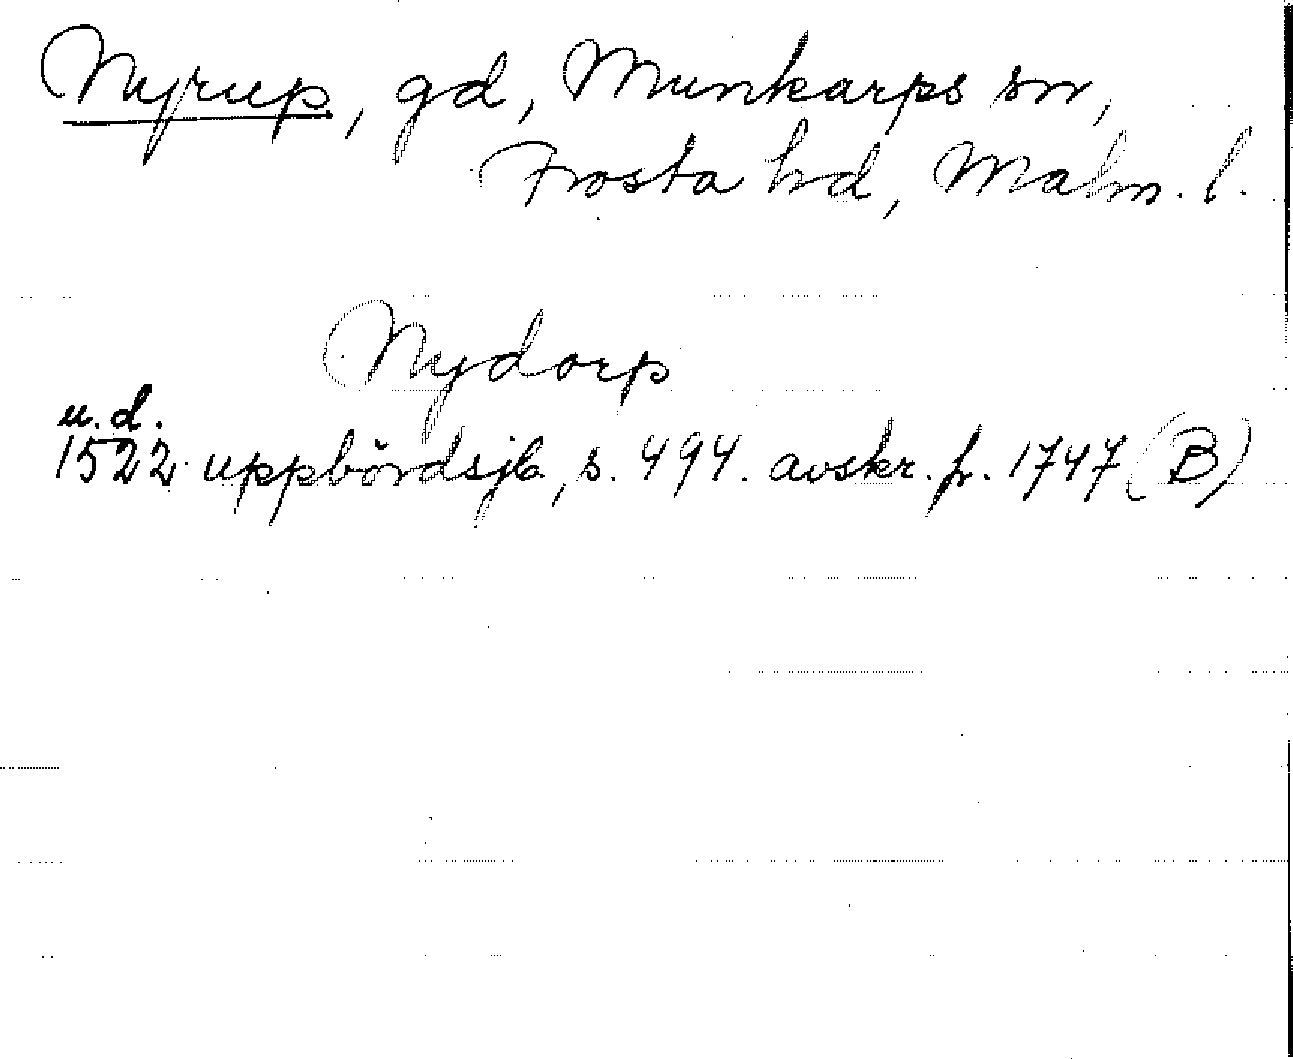 Nyrup, gd, Munkarps sn,
Frosta hd, Malm. l.
Nydorp
u.d.
1522 uppbördsjb, s. 494. avskr. fr. 1747 (B)